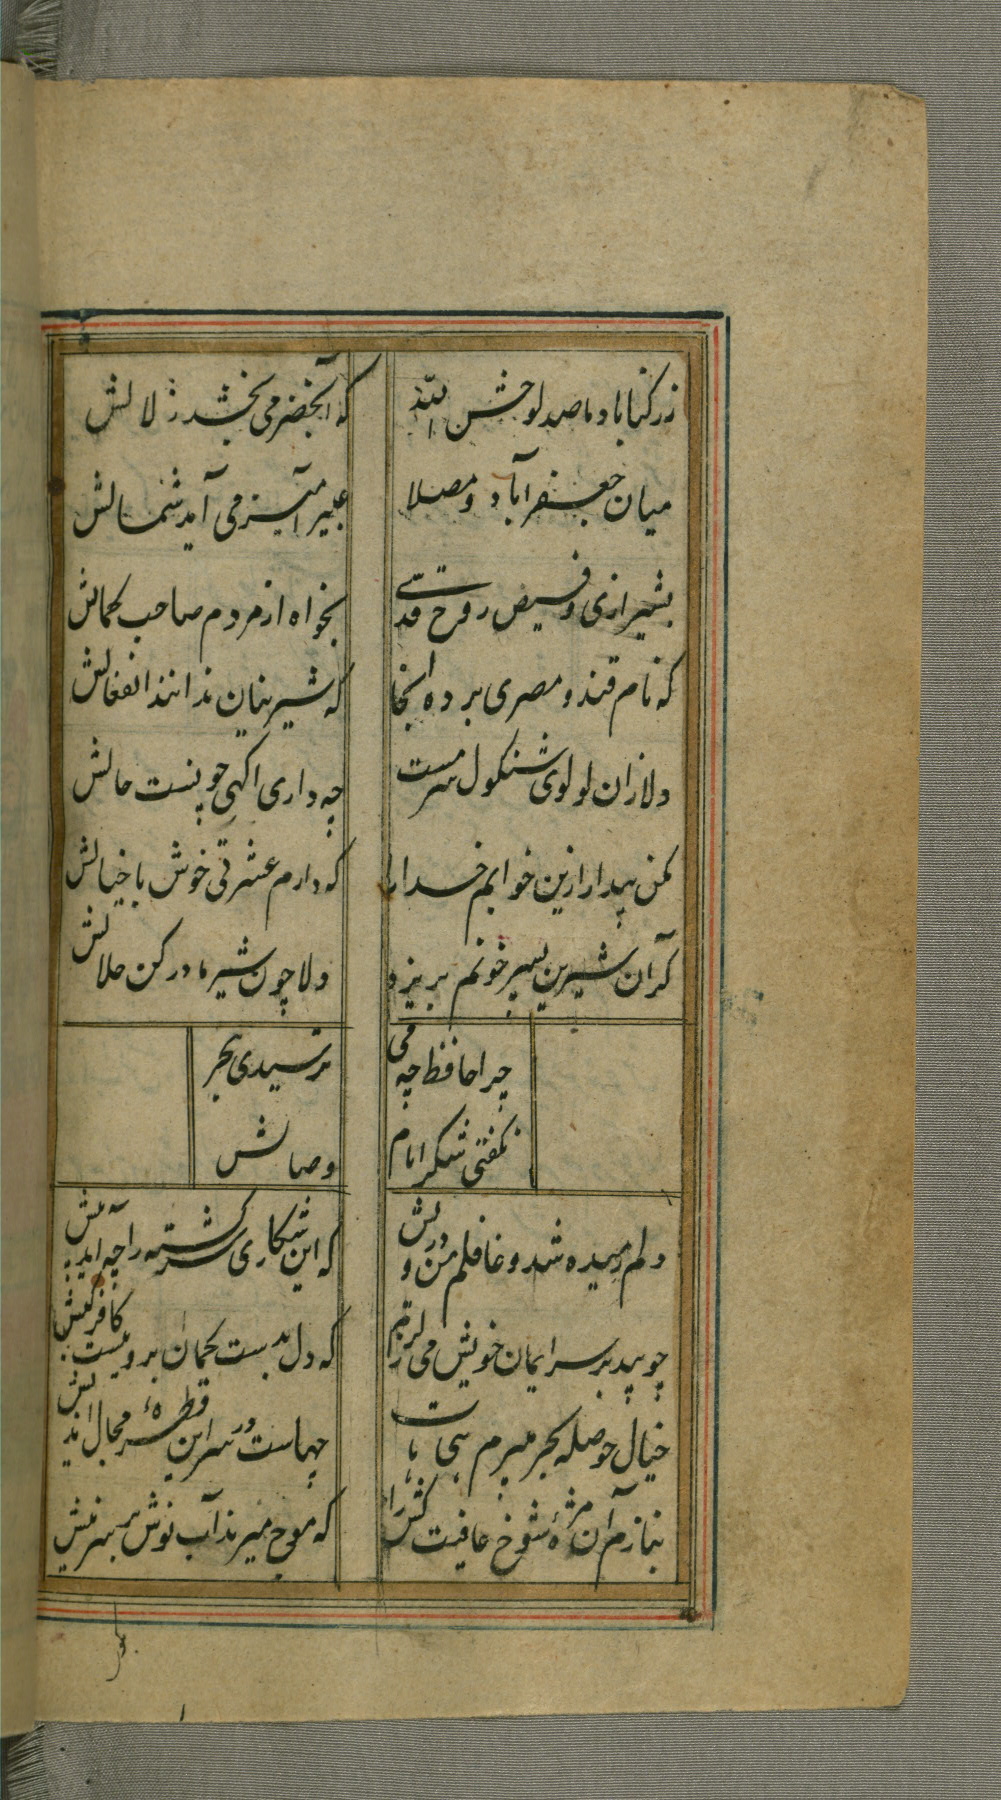 زرکناباد ما صد لوحش الله
که آبخضر می بخشد زلالش
میان جعفرآباد و مصلا
عبیر آمیز می آید شمالش
بشیراز آی و فیض روح قدسی
بخواه از مردم صاحب کمالش
که نام قند و مصری برد آنجا
که شیرینان ندادند انفعالش
دلا زان لولوی شنکول سرمست
چه داری اکهی چونست حالش
مکن بیدار ازین خوابم خدا را
که دارم عشرتی خوش با خیالش
کر آن شیرین پسر خونم بریزد
دلا چون شیر مادر کن حلالش
چرا حافظ چه می
ترسیدی بهجر
نکفتی شکر ایام
وصالش
دلم رمیده شد و غافلم من درویش
که این شکاری سرکشته را چه آید پیش
چو بید بر سر ایمان خویش می لرزم
که دل بدست کمان ابرویست کافر کیش
خیال حوصله بحر میپزم هیهات
چهاست در سر این قطره محال اندیش
بنازم آن مژهٔ شوخ عافیت کش را
که موج میزندآب نوش بر سر نیش